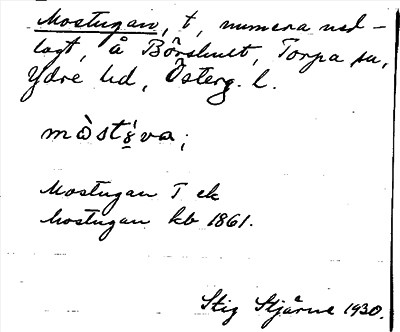 Mostugan, t, numera ned-
lagt, å Börshult, Torpa sn,
Ydre hd, Österg. l.
Mostugan T ek
Mostugan kb 1861.
Stig Stjärne 1930.